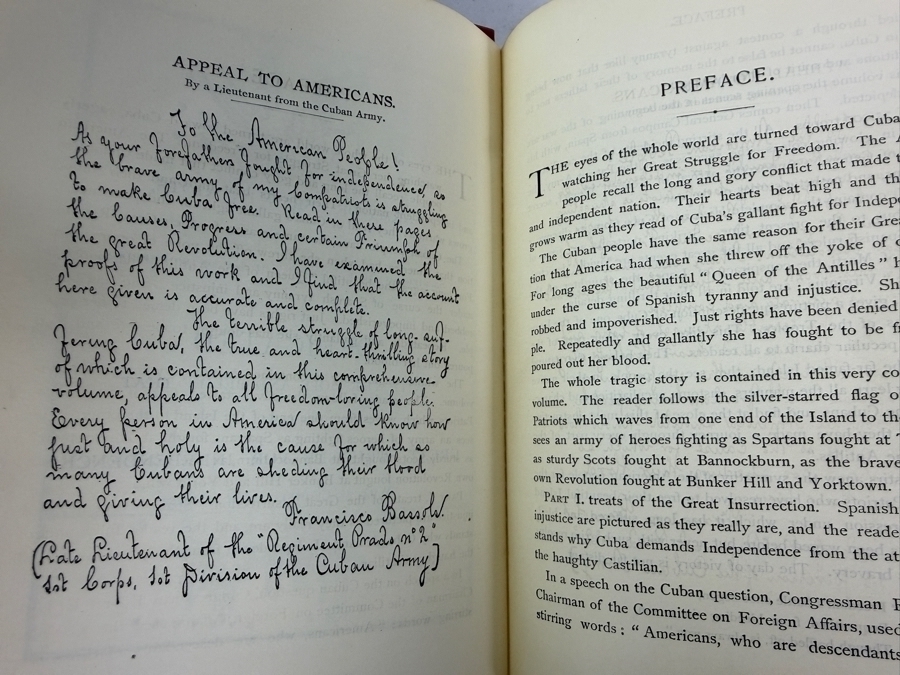 APPEAL TO AMERICANS.
By a Lieutenant from the Cuban Army.
To the American People!
As your forefathers fought for independence, so
the brave army of my Compatriots is struggling
to make Cuba free. Read in these pages
the Causes, Progress and certain Triumph of
the great Revolution. I have examined the
proofs of this work and I find that the account
here given is accurate and complete.
The terrible struggle of long-suf-
fering Cuba, the true and heart-thrilling story
of which is contained in this comprehensive
volume, appeals to all freedom-loving people.
Every person in America should know how
just and holy is the cause for which so
many Cubans are sheding their blood
and giving their lives.
Francisco Bassols.
(Late Lieutenant of the "Regiment Prado nº 2"
1st Corps, 1st Division of the Cuban Army)
PREFACE.
THE eyes of the whole world are turned toward Cuba
watching her Great Struggle for Freedom. The
people recall the long and gory conflict that made
and independent nation. Their hearts beat high and
grows warm as they read of Cuba's gallant fight for
The Cuban people have the same reason for their
tion that America had when she threw off the yoke of
For long ages the beautiful "Queen of the Antilles"
under the curse of Spanish tyranny and injustice.
robbed and impoverished. Just rights have been denied
ple. Repeatedly and gallantly she has fought to be
poured out her blood.
The whole tragic story is contained in this very
volume. The reader follows the silver-starred flag
Patriots which waves from one end of the Island to
sees an army of heroes fighting as Spartans fought at
as sturdy Scots fought at Bannockburn, as the
own Revolution fought at Bunker Hill and Yorktown.
PART I. treats of the Great Insurrection. Spanish
injustice are pictured as they really are, and the
stands why Cuba demands Independence from the
the haughty Castilian.
In a speech on the Cuban question, Congressman
Chairman of the Committee on Foreign Affairs, used
stirring words: "Americans, who are descendants